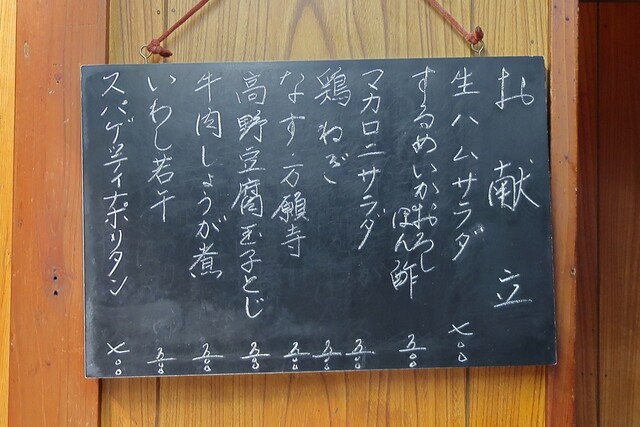 お献立
生ハムサラダ 七〇〇
するめいかおろしぽん酢 五〇〇
マカロニサラダ 五〇〇
鶏ねぎ 五〇〇
なす・万願寺 五〇〇
高野豆腐玉子とじ 五〇〇
牛肉しょうが煮 五〇〇
いわし若干 五〇〇
スパゲティナポリタン 七〇〇